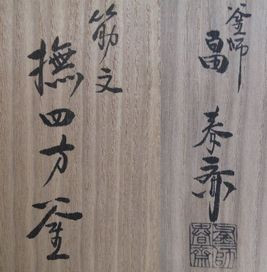 釜師
畠春斎
筋文
撫四方釜